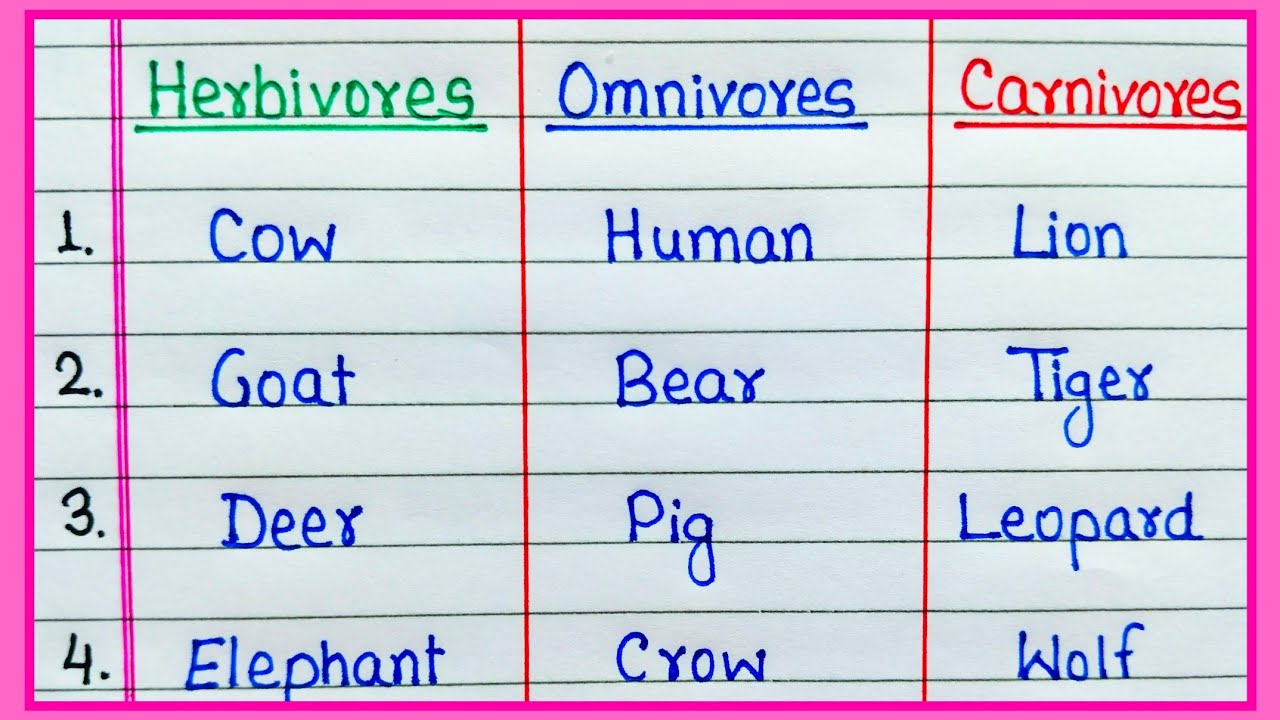 Herbivores Omnivores Carnivores
1. Cow Human Lion
2. Goat Bear Tiger
3. Deer Pig Leopard
4. Elephant Crow Wolf